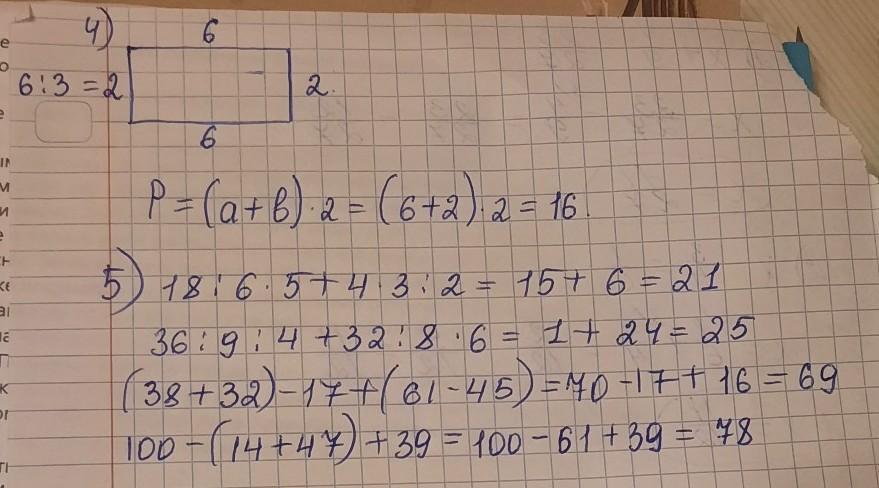 4) 6
6:3=2 2.
6
P=(a+b)·2=(6+2)·2=16.
5) 18:6·5+4·3:2=15+6=21
36:9:4+32:8·6=1+24=25
(38+32)-17+(61-45)=70-17+16=69
100-(14+47)+39=100-61+39=78